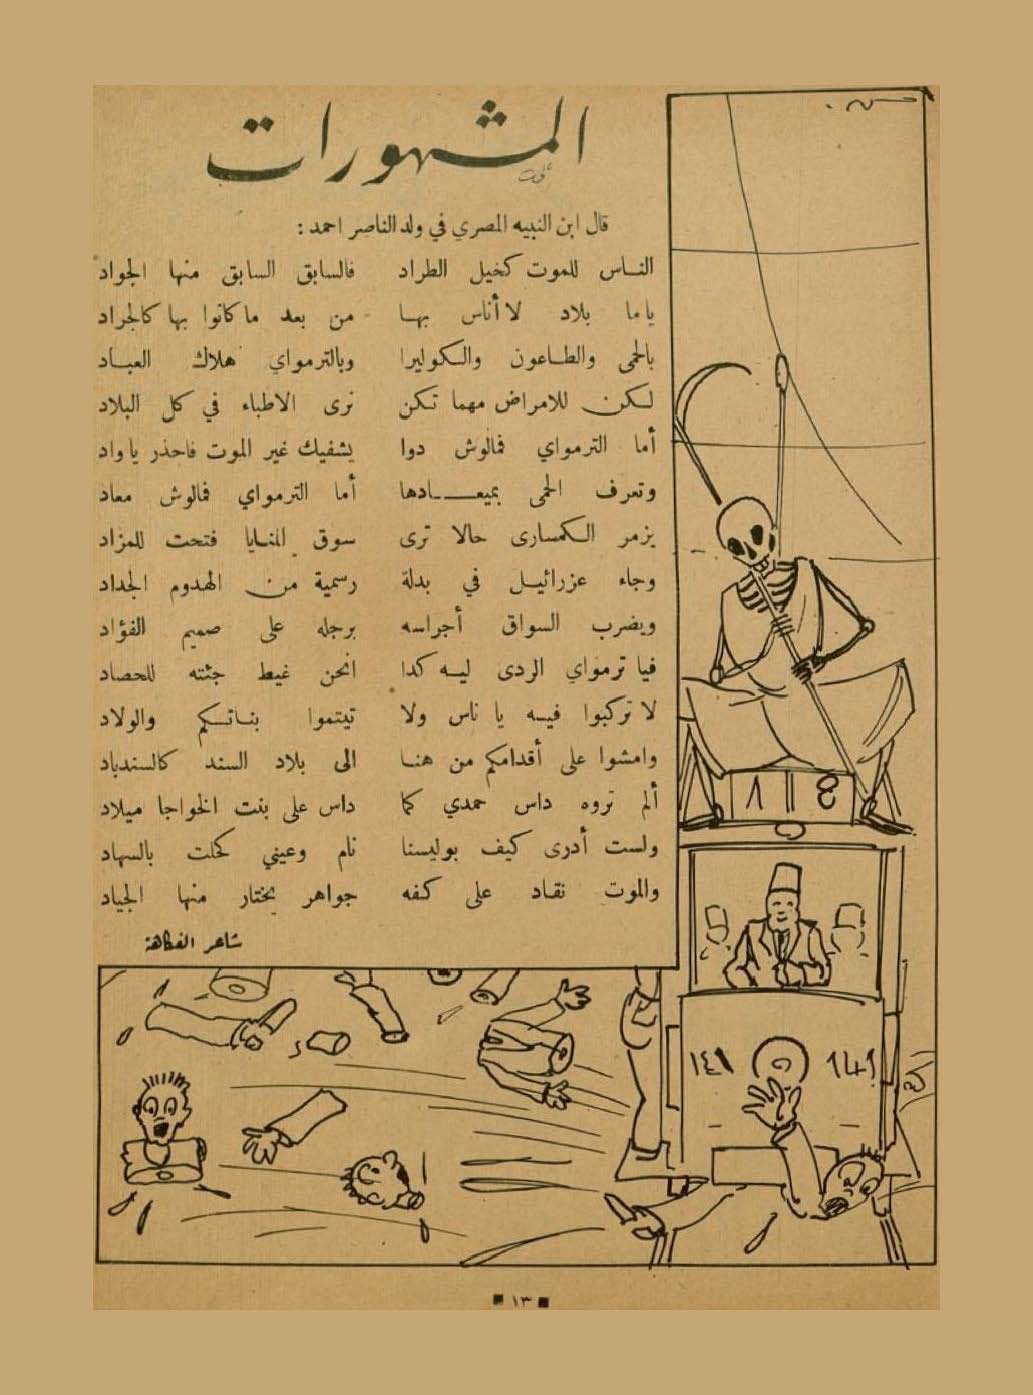 المشهورات
قال ابن النبيه المصري في ولد الناصر احمد :
الناس للموت كخيل الطراد فالسابق السابق منها الجواد
ياما بلاد لا أناس بها من بعد ما كانوا بها كالجراد
بالحمى والطاعون والكوليرا وبالترمواي هلاك العباد
لكن للامراض مهما تكن نرى الاطباء في كل البلاد
أما الترمواي فمالوش دوا يشفيك غير الموت فاحذر ياواد
وتعرف الحمى بميعادها أما الترمواي فمالوش معاد
يزمر الكمسارى حالا ترى سوق المنايا فتحت للمزاد
وجاء عزرائيل في بدلة رسمية من الهدوم الجداد
ويضرب السواق أجراسه برجله على صميم الفؤاد
فيا ترمواي الردى ليه كدا انحن غيط جثته للحصاد
لا تركبوا فيه يا ناس ولا تيتموا بناتكم والولاد
وامشوا على أقدامكم من هنا الى بلاد السند كالسندباد
ألم تروه داس حمدي كما داس على بنت الخواجا ميلاد
ولست أدرى كيف بوليسنا نام وعيني كحلت بالسهاد
والموت نقاد على كفه جواهر يختار منها الجياد
شاعر الفكاهة
١ 8
١٤١ 141
١٣